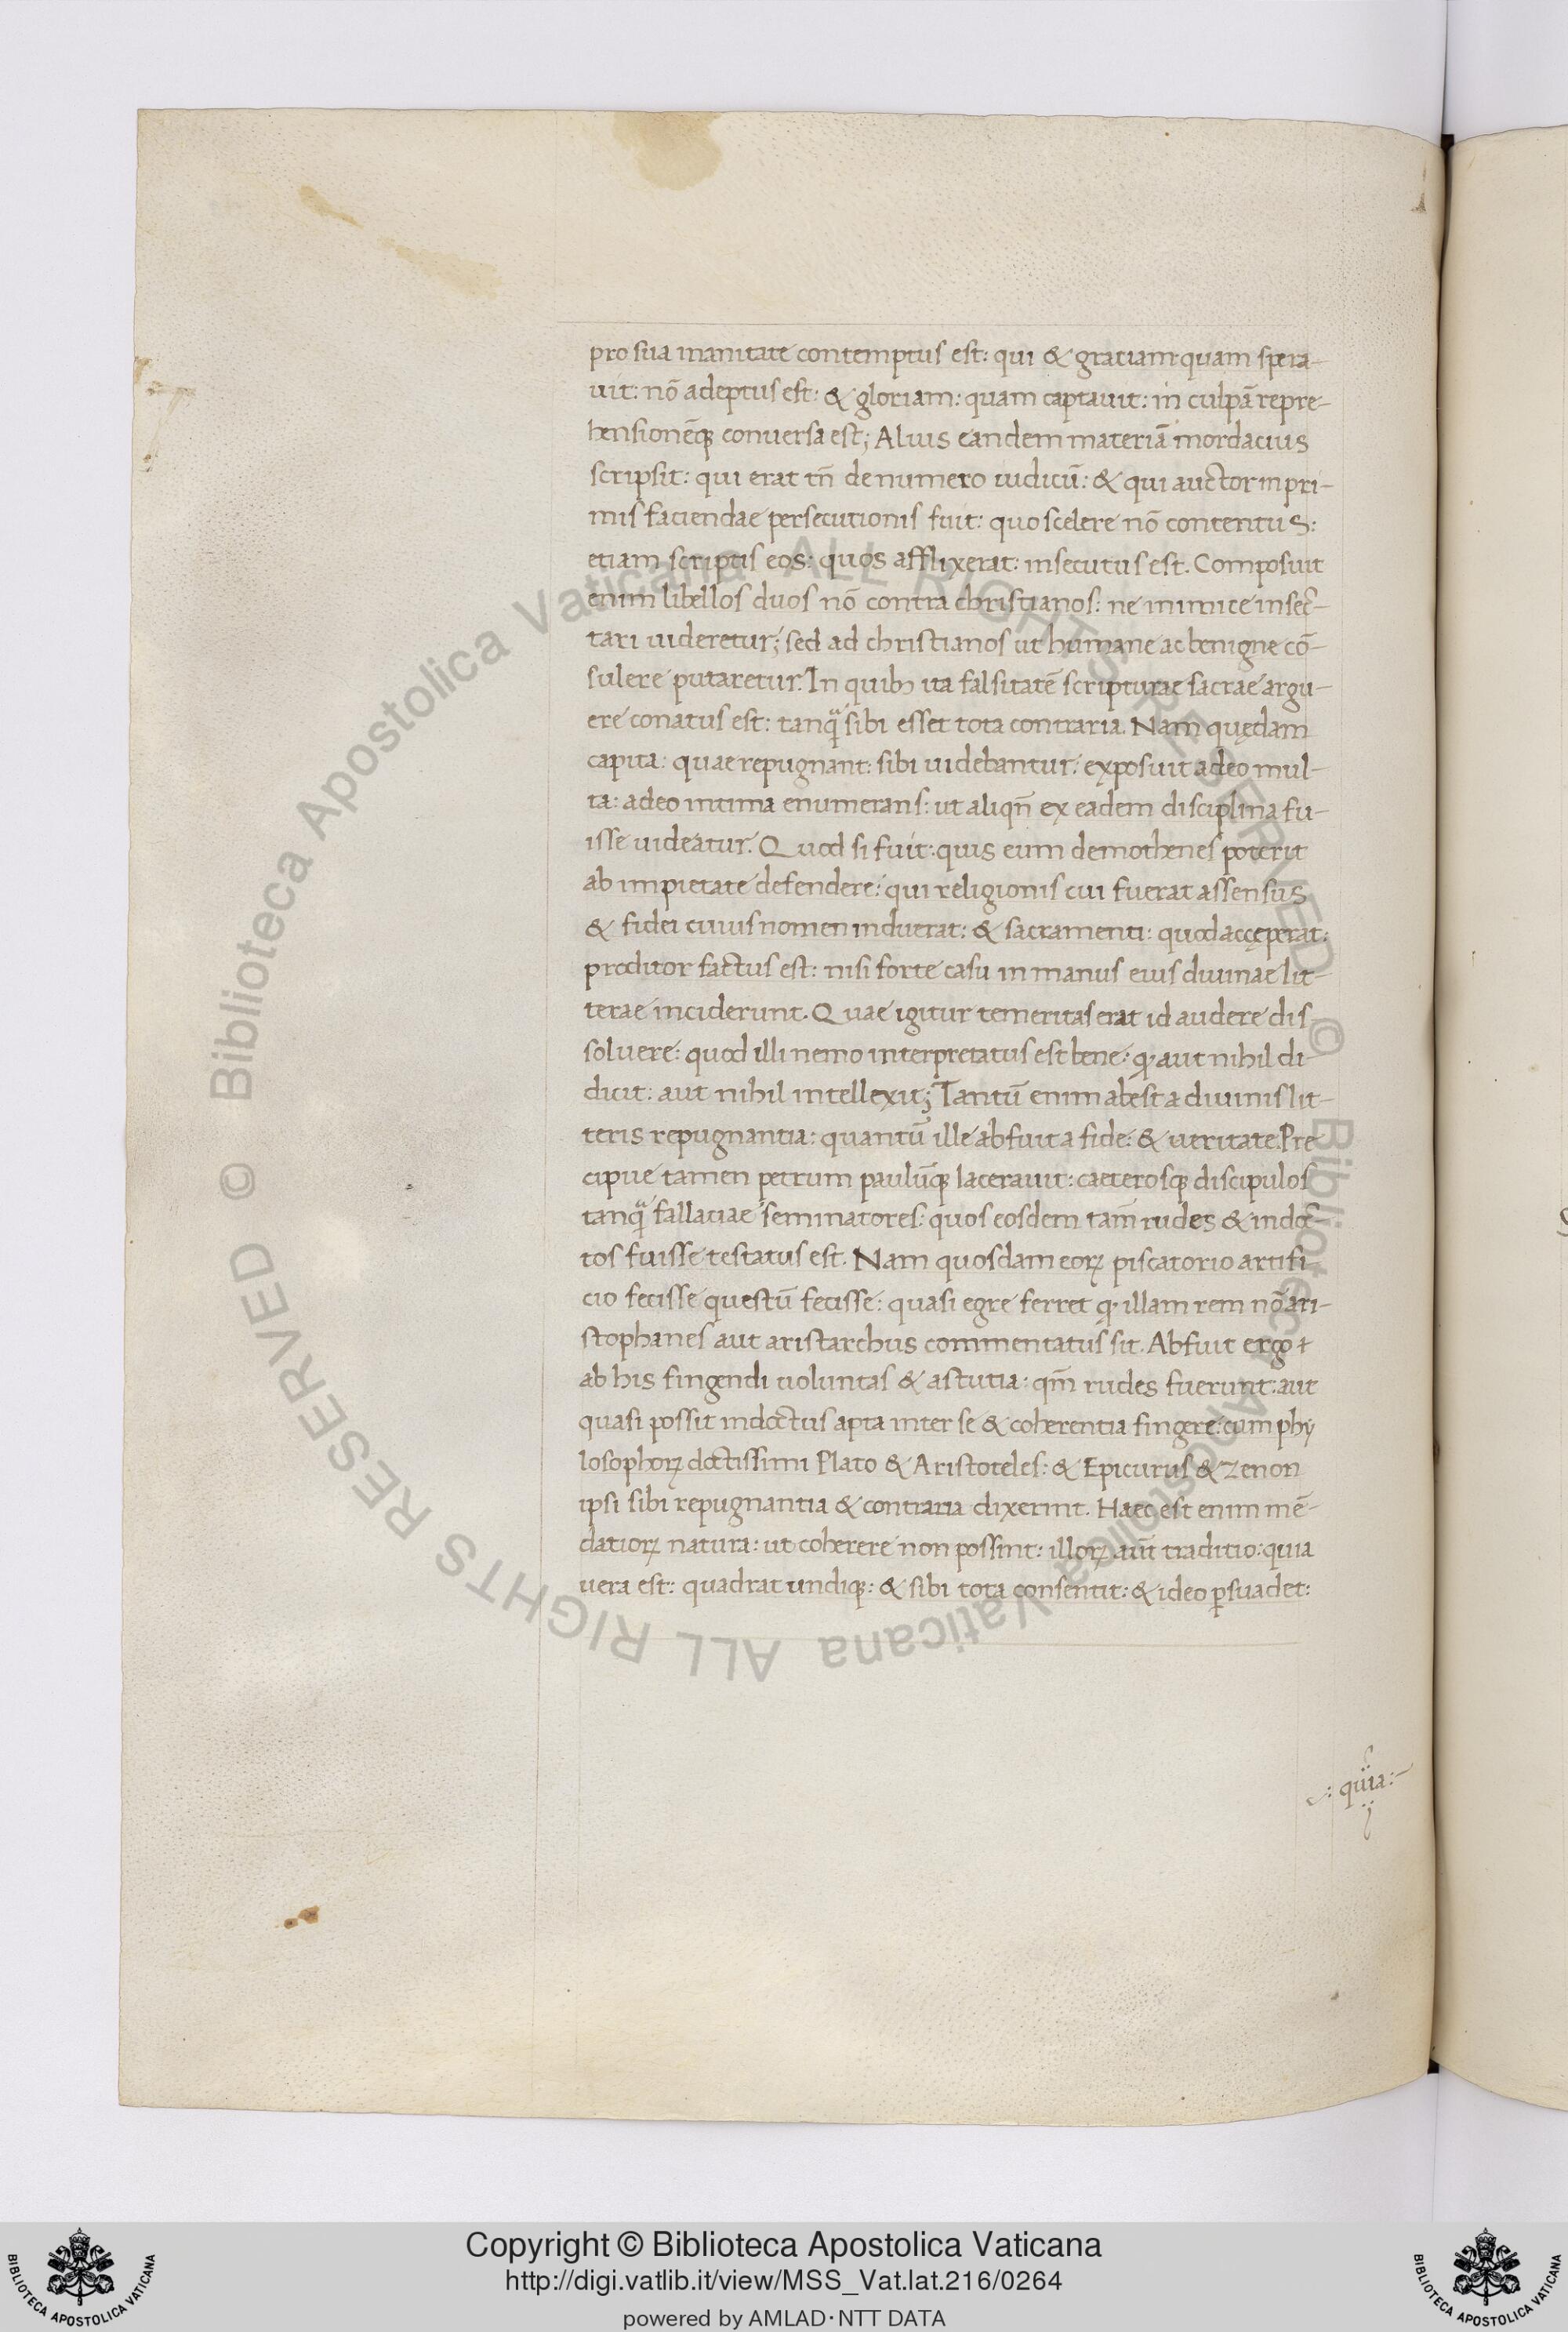 pro sua inanitate contemptus est: qui & gratiam quam spera-
uit: nō adeptus est: & gloriam: quam captauit: in culpā repre-
hensionēq; conuersa est; Alius eandem materiā mordacius
scripsit: qui erat tn̄ de numero iudicū: & qui auctor in pri-
mis faciendae persecutionis fuit: quo scelere nō contentus:
etiam scriptis eos: quos afflixerat: insecutus est. Composuit
enim libellos duos nō contra christianos: ne inimice insec-
tari uideretur; sed ad christianos ut humane ac benigne cō-
sulere putaretur. In quibꝫ ita falsitatē scripturae sacrae argu-
ere conatus est: tanq̄ sibi esset tota contraria. Nam quędam
capita: quae repugnant: sibi uidebantur: exposuit adeo mul-
ta: adeo intima enumerans: ut aliqn̄ ex eadem disciplina fu-
isse uideatur. Quod si fuit: quis eum demothenes poterit
ab impietate defendere: qui religionis cui fuerat assensus
& fidei cuius nomen induerat: & sacramenti: quod accęperat:
proditor factus est: nisi forte casu in manus eius diuinae lit-
terae inciderunt. Quae igitur temeritas erat id audere dis-
soluere: quod illi nemo interpretatus est bene: ꝙ aut nihil di-
dicit: aut nihil intellexit; Tantū enim abest a diuinis lit-
teris repugnantia: quantū ille abfuit a fide: & ueritate. Pre
cipue tamen petrum paulūq; lacerauit: caeterosq; discipulos
tanq̄ fallaciae seminatores: quos eosdem tam̄ rudes & indoc-
tos fuisse testatus est. Nam quosdam eorꝝ piscatorio artifi-
cio fecisse questū fecisse: quasi egre ferret ꝙ illam rem nō ari-
stophanes aut aristarchus commentatus sit. Abfuit ergo
ab his fingendi uoluntas & astutia: qm̄ rudes fuerunt: aut
quasi possit indoctus apta inter se & coherentia fingere: cum phy
losophorꝝ doctissimi Plato & Aristoteles: & Epicurus & zenon
ipsi sibi repugnantia & contraria dixerint. Haec est enim mē-
datiorꝝ natura: ut coherere non possint: illorꝝ aūt traditio: quia
uera est: quadrat undiq;: & sibi tota consentit: & ideo ꝑsuadet:
quia
© Biblioteca Apostolica Vaticana ALL RIGHTS RESERVED
© Biblioteca Apostolica Vaticana ALL RIGHTS RESERVED
BIBLIOTECA APOSTOLICA VATICANA
Copyright © Biblioteca Apostolica Vaticana
http://digi.vatlib.it/view/MSS_Vat.lat.216/0264
powered by AMLAD·NTT DATA
BIBLIOTECA APOSTOLICA VATICANA